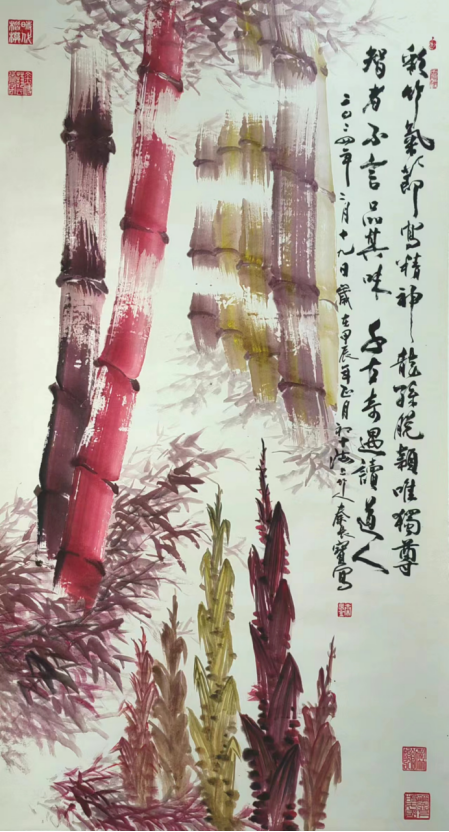 彩竹氣節寫精神龍孫脱穎唯獨尊
智者不言品其味千古奇遇讀道人
二〇二四年二月十九日歲在甲辰年正月初十海上竹人秦長寶寫